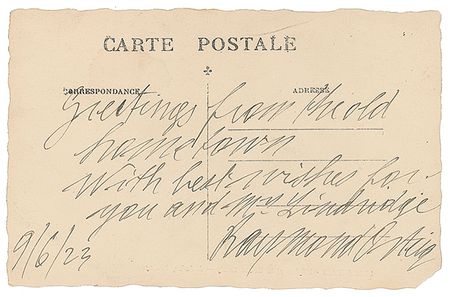 CARTE POSTALE
CORRESPONDANCE
ADRESSE
Greetings from the old
home town
With best wishes for
you and
Raymond Orteig
9/6/23